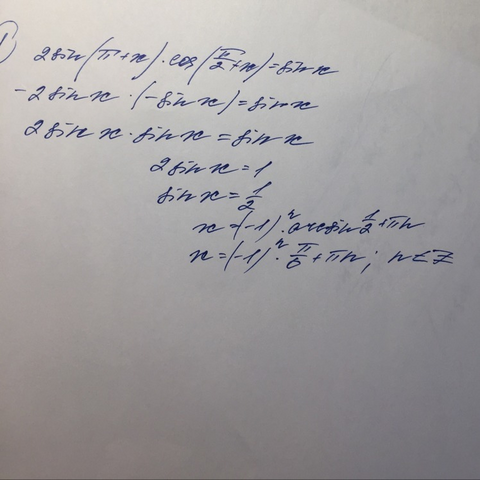 1)
2sin(π+x)·cos(π/2+x)=sinx
-2sinx·(-sinx)=sinx
2sinx·sinx=sinx
2sinx=1
sinx=1/2
x=(-1)ⁿ·arcsin 1/2+πn
x=(-1)ⁿ·π/6+πn; n∈Z